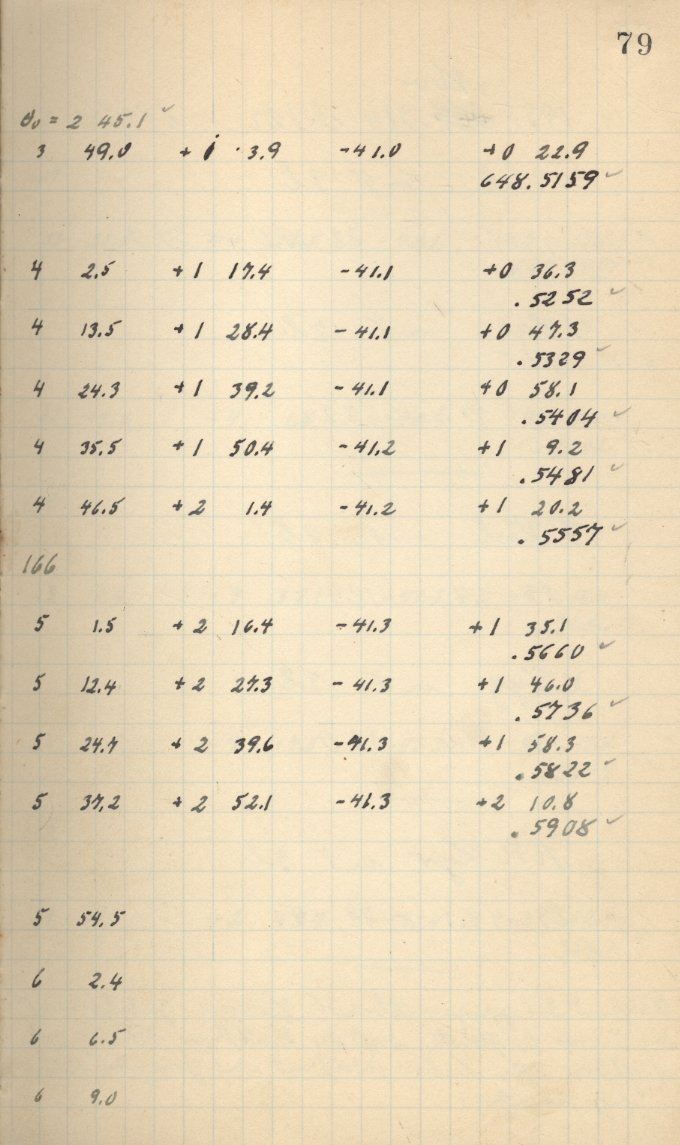 79
α₀ = 2 45.1 ✓
3 49.0 + 1 3.9 -41.0 +0 22.9
648.5159 ✓
4 2.5 +1 17.4 -41.1 +0 36.3
.5252 ✓
4 13.5 +1 28.4 -41.1 +0 47.3
.5329 ✓
4 24.3 +1 39.2 -41.1 +0 58.1
.5404 ✓
4 35.5 +1 50.4 -41.2 +1 9.2
.5481 ✓
4 46.5 +2 1.4 -41.2 +1 20.2
.5557 ✓
166
5 1.5 +2 16.4 -41.3 +1 35.1
.5660 ✓
5 12.4 +2 27.3 -41.3 +1 46.0
.5736 ✓
5 24.7 +2 39.6 -41.3 +1 58.3
.5822 ✓
5 37.2 +2 52.1 -41.3 +2 10.8
.5908 ✓
5 54.5
6 2.4
6 6.5
6 9.0